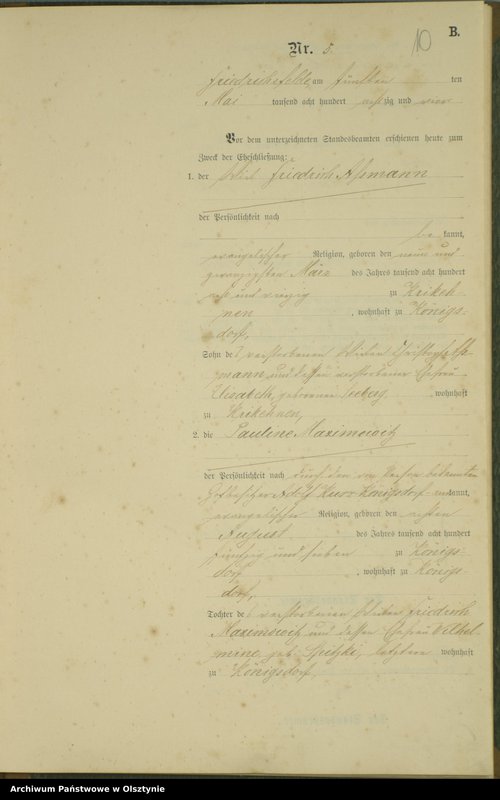 B.
10
Nr. 5.
Friedrichsfelde am fünften ten
Mai tausend acht hundert achtzig und vier
Vor dem unterzeichneten Standesbeamten erschienen heute zum
Zweck der Eheschließung:
1. der Friedrich Aßmann
der Persönlichkeit nach
be kannt,
evangelischer Religion, geboren den neun und
zwanzigsten März des Jahres tausend acht hundert
acht und vierzig zu Krikeh
nen, wohnhaft zu Königs-
dorf,
Sohn des verstorbenen
mann und dessen verstorbener Ehefrau
Elisabeth, geborenen wohnhaft
zu Krikehnen,
2. die Pauline Maximowitz
der Persönlichkeit nach durch den von Person bekannten
Adolf Kurz Königsdorf kannt,
evangelischer Religion, geboren den ersten
August des Jahres tausend acht hundert
fünfzig und sieben zu Königs-
dorf, wohnhaft zu Königs-
dorf,
Tochter des verstorbenen Friedrich
Maximowitz und dessen Ehefrau Wilhel-
mine geb. letztere wohnhaft
zu Königsdorf,
Archiwum Państwowe w Olsztynie